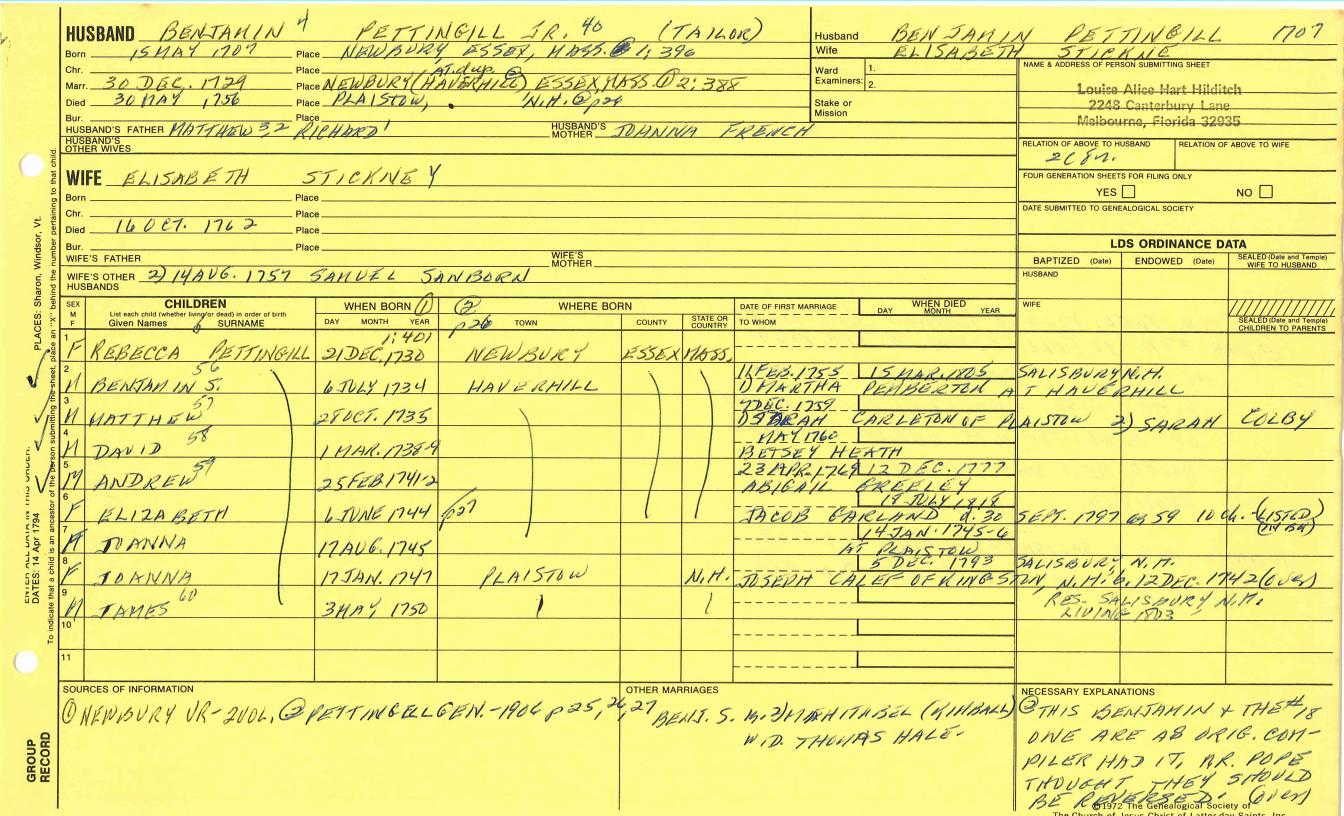 HUSBAND BENJAMIN 4 PETTINGILL JR. 40 (TAILOR)
Born 15 MAY 1707 Place NEWBURY, ESSEX, MASS. ① 1; 396
Chr. Place AT dup. ②
Marr. 30 DEC. 1729 Place NEWBURY (HAVERHILL) ESSEX MASS. ① 2; 388
Died 30 MAY 1756 Place PLAISTOW, N.H. ② p24
Bur. Place
HUSBAND'S FATHER MATTHEW 3, 2 RICHARD 1 HUSBAND'S MOTHER JOANNA FRENCH
HUSBAND'S OTHER WIVES
WIFE ELISABETH STICKNEY
Born Place
Chr. Place
Died 16 OCT. 1762 Place
Bur. Place
WIFE'S FATHER WIFE'S MOTHER
WIFE'S OTHER HUSBANDS 2) 14 AUG. 1757 SAMUEL SANBORN
Husband BENJAMIN PETTINGILL 1707
Wife ELISABETH STICKNE
Ward Examiners: 1.
2.
Stake or Mission
NAME & ADDRESS OF PERSON SUBMITTING SHEET
Louise Alice Hart Hilditch
2248 Canterbury Lane
Melbourne, Florida 32935
RELATION OF ABOVE TO HUSBAND RELATION OF ABOVE TO WIFE
FOUR GENERATION SHEETS FOR FILING ONLY
YES NO
DATE SUBMITTED TO GENEALOGICAL SOCIETY
LDS ORDINANCE DATA
BAPTIZED (Date) ENDOWED (Date) SEALED (Date and Temple) WIFE TO HUSBAND
HUSBAND
WIFE
SEALED (Date and Temple) CHILDREN TO PARENTS
SEX M F
CHILDREN
List each child (whether living or dead) in order of birth
Given Names SURNAME
WHEN BORN ① DAY MONTH YEAR
1; 401
② p26 WHERE BORN
TOWN COUNTY STATE OR COUNTRY
DATE OF FIRST MARRIAGE
TO WHOM
WHEN DIED
DAY MONTH YEAR
1 F REBECCA PETTINGILL 21 DEC. 1730 NEWBURY ESSEX MASS.
2 M BENJAMIN 5. 56 6 JULY 1734 HAVERHILL 16 FEB. 1755 15 MAR. 1805 SALISBURY N.H.
1) MARTHA PEMBERTON AT HAVERHILL
3 M MATTHEW 57 28 OCT. 1735 7 DEC. 1759
1) SARAH CARLETON OF PLAISTOW 2) SARAH COLBY
4 M DAVID 58 1 MAR. 1738-9 MAY 1760
BETSEY HEATH
5 M ANDREW 59 25 FEB 1741-2 23 APR. 1769 12 DEC. 1777
ABIGAIL GREELEY
6 F ELIZABETH 6 JUNE 1744 p27 19 JULY 1819
JACOB GARLAND d. 30 SEPT. 1797 ae 59 10 ch. (LISTED
7 F JOANNA 17 AUG. 1745 14 JAN. 1745-6
AT PLAISTOW
8 F JOANNA 17 JAN. 1747 PLAISTOW N.H. 5 DEC. 1793 SALISBURY, N.H.
JOSEPH CALEF OF KINGSTON, N.H. b. 12 DEC. 1742 (over)
9 M JAMES 60 3 MAY 1750 RES. SALISBURY N.H.
LIVING 1803
10
11
SOURCES OF INFORMATION
① NEWBURY VR-2VOL, ② PETTINGELL GEN.-1906 p 25, 26, 27
OTHER MARRIAGES
BENJ. 5. m. 2) MEHITABEL (KIMBALL)
W.D. THOMAS HALE.
NECESSARY EXPLANATIONS
② THIS BENJAMIN & THE #18
ONE ARE AS ORIG. COM-
PILER HAD IT, MR. POPE
THOUGHT THEY SHOULD
BE REVERSED. (over)
©1972 The Genealogical Society of
The Church of Jesus Christ of Latter-day Saints, Inc.
PLACES: Sharon, Windsor, Vt.
ENTER ALL DATA IN THIS ORDER:
DATES: 14 Apr 1794
To indicate that a child is an ancestor of the person submitting the sheet, place an "X" behind the number pertaining to that child.
GROUP RECORD